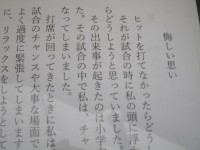 悔しい思い
ヒットを打てなかったらどう
それが試合の時に私の頭に浮
らどうしようと思っていました。
その出来事が起きたのは小学
た。その試合の中で私は、チャ
なってしまいました。
打席が回ってきたときに私は
試合のチャンスや大事な場面で
よく過度に緊張してしまいます
に、リラックスをしようとして